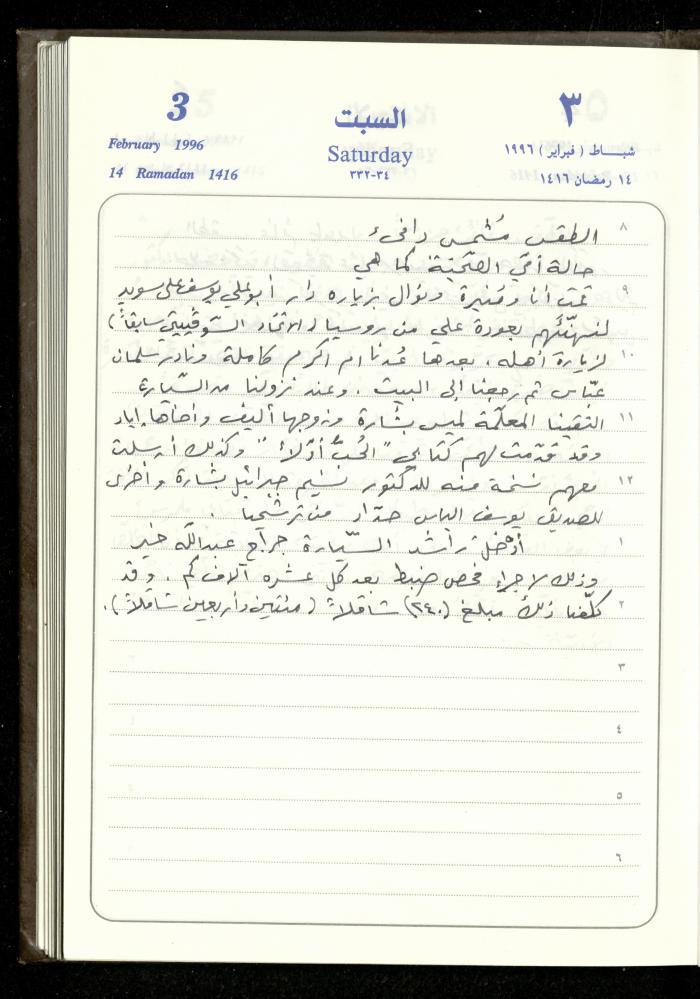 3
السبت
٣
February 1996
Saturday
شباط ( فبراير ) ١٩٩٦
14 Ramadan 1416
٣٣٢-٣٤
١٤ رمضان ١٤١٦
٨
الطقس مُشمس دافئ
حالة أمّي الصّحّيّة كما هي
٩
قمت أنا و ونوال بزياره دار أبو علي يوسف علي سويد
لنهنّئهم بعودة علي من روسيا ( الاتحاد السّوڤييتي سابقاً )
١٠
لزيارة أهله ، بعدها عُدنا ام اكرم كاملة ونادر سلمان
عبّاس ثم رجعنا إلى البيت . وعند نزولنا من السّيّارة
١١
التقينا المعلّمة لميس بشارة وزوجها أليف وأخاها إياد
وقد قدّمت لهم كتابي "الحُبُّ أوّلاً" وكذلك أرسلت
١٢
معهم نسخة منه للدكتور نسيم جبرائيل بشارة وأخرى
للصديق يوسف الياس حدّاد من ترشيحا .
١
أدخلَ راشد السّيّارة جراج عبدالله خير
وذلك لاجراء فحص ضبط بعد كل عشره آلاف كم . وقد
٢
كلّفنا ذلك مبلغ (٢٤٠) شاقلاً ( مئتين وأربعين شاقلاً ) .
٣
٤
٥
٦